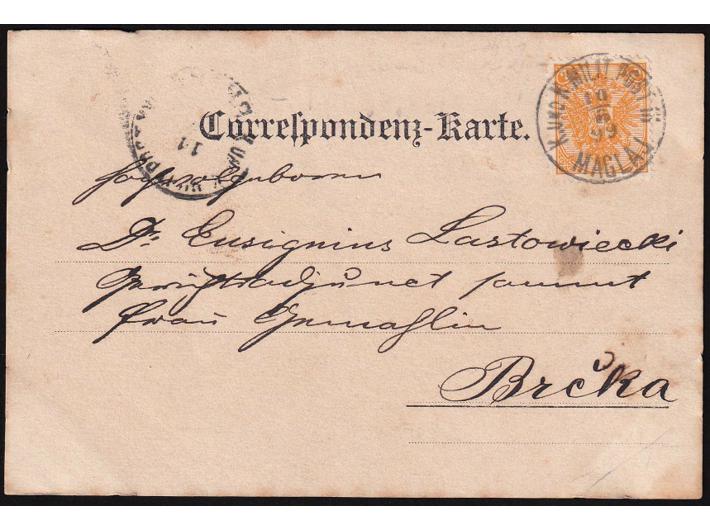 K. UND K. MILIT. POST III
19
5
99
MAGLAJ
11
Correspondenz-Karte.
Hochwolgeboren
Dr. Eusignius Lastowiecki
Gerichtsadjunct sammt
Frau Gemahlin
Brčka